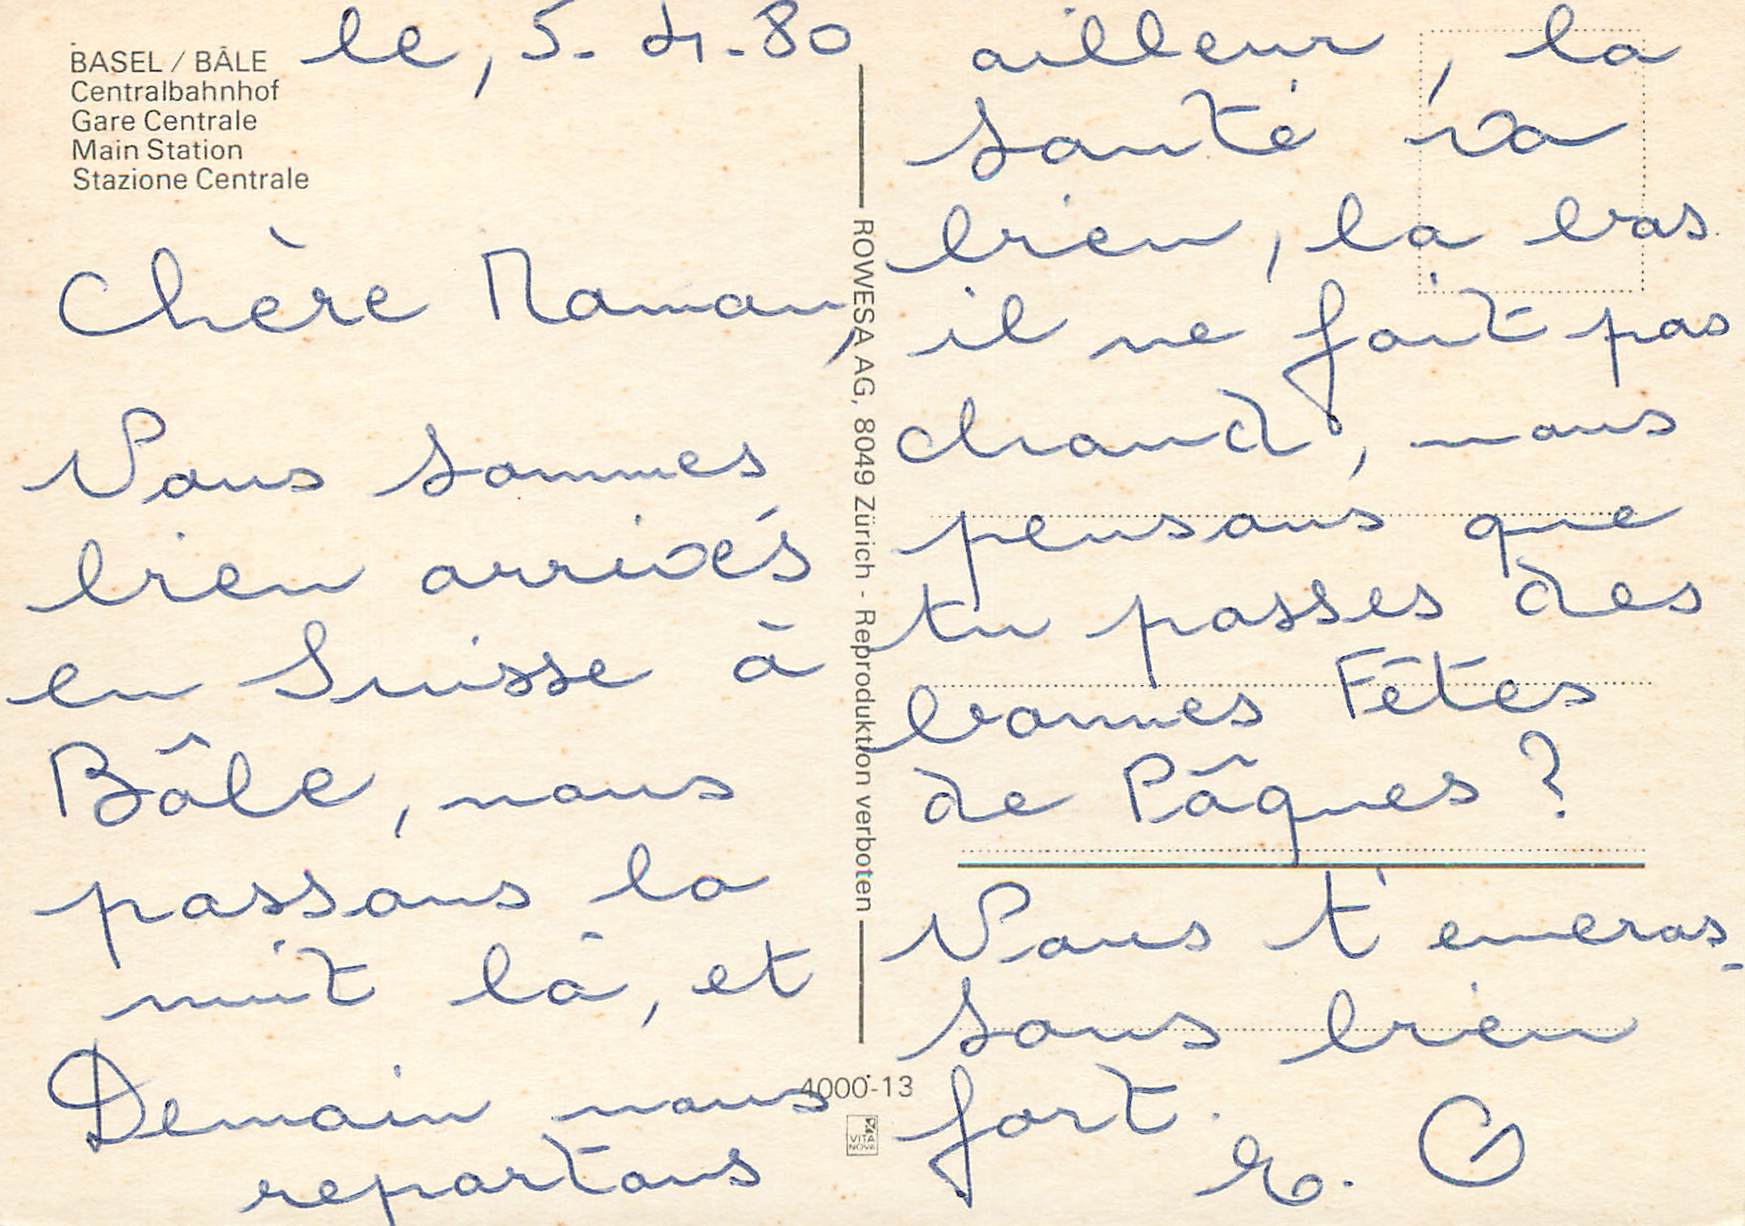 BASEL / BÂLE
Centralbahnhof
Gare Centrale
Main Station
Stazione Centrale
le, 5-4-80
Chère Maman,
Nous sommes
bien arrivés
en Suisse à
Bâle, nous
passons la
nuit là, et
Demain nous
repartons
ROWESA AG, 8049 Zürich - Reproduktion verboten
4000-13
VITA
NOVA
ailleur, la
santé va
bien, la bas
il ne fait pas
chaud, nous
pensons que
tu passes des
bonnes Fêtes
de Pâques ?
Nous t'embras-
sons bien
fort.